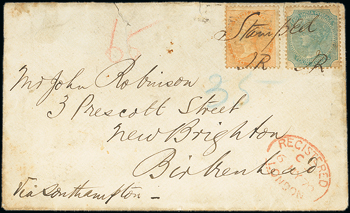 65
Stamped
JR JR
Mr John Robinson
35
3 Prescott Street
New Brighton
Birkenhead
REGISTERED
Via Southampton